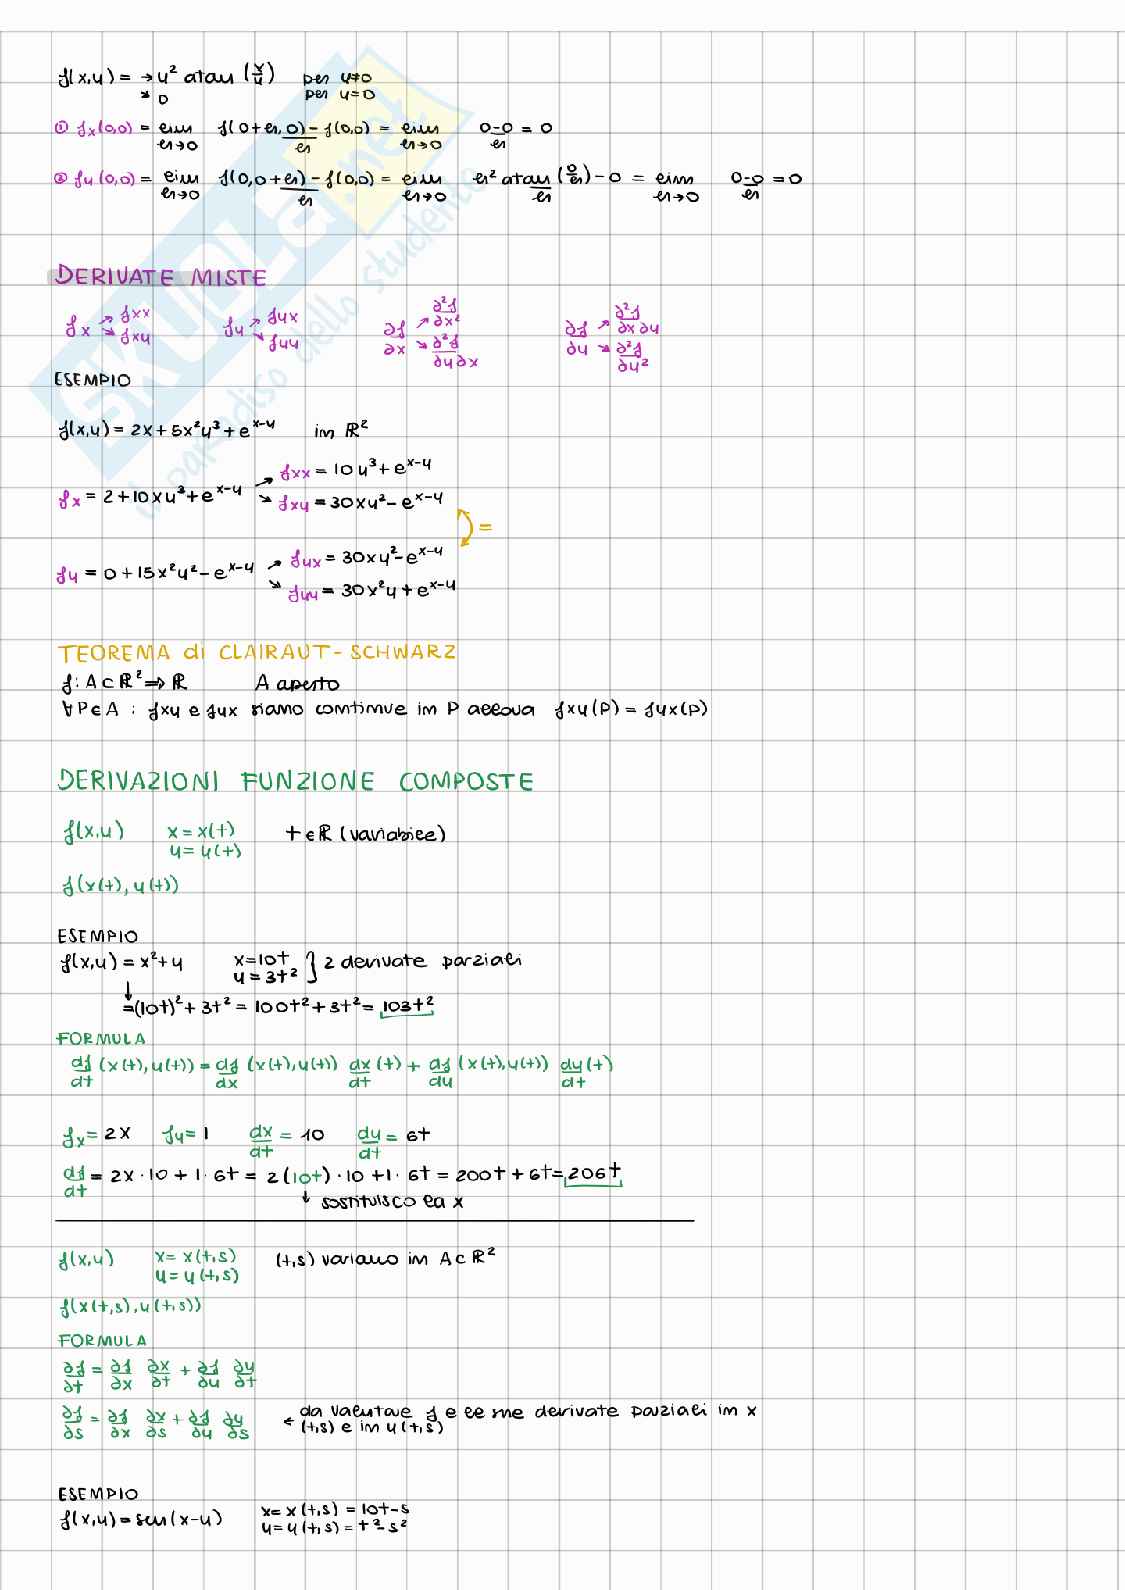 f(x,y) = → y² atan (x/y) per y≠0
↘ 0 per y=0
① fx(0,0) = lim h→0 f(0+h,0)-f(0,0)/h = lim h→0 0-0/h = 0
② fy(0,0) = lim h→0 f(0,0+h)-f(0,0)/h = lim h→0 h² atan(0/h)-0/h = lim h→0 0-0/h = 0
DERIVATE MISTE
fx ↗ fxx ↘ fxy fy ↗ fyx ↘ fyy ∂f/∂x ↗ ∂²f/∂x² ↘ ∂²f/∂y∂x ∂f/∂y ↗ ∂²f/∂x∂y ↘ ∂²f/∂y²
ESEMPIO
f(x,y) = 2x+5x²y³+e^x-y in ℝ²
fxx = 10y³+e^x-y
fx = 2+10xy³+e^x-y
fxy = 30xy²-e^x-y
=
fyx = 30xy²-e^x-y
fy = 0+15x²y²-e^x-y
fyy = 30x²y+e^x-y
TEOREMA di CLAIRAUT-SCHWARZ
f: A⊂ℝ²⇒ℝ A aperto
∀P∈A : fxy e fyx siano continue in P allora fxy(P) = fyx(P)
DERIVAZIONI FUNZIONE COMPOSTE
f(x,y) x=x(t) t∈ℝ (variabile)
y=y(t)
f(x(t),y(t))
ESEMPIO
f(x,y) = x²+y x=10t } 2 derivate parziali
y=3t²
↓
=(10t)²+3t² = 100t²+3t² = 103t²
FORMULA
df/dt (x(t),y(t)) = df/dx (x(t),y(t)) dx/dt (t) + df/dy (x(t),y(t)) dy/dt (t)
fx = 2x fy = 1 dx/dt = 10 dy/dt = 6t
df/dt = 2x·10+1·6t = 2(10t)·10+1·6t = 200t+6t = 206t
↓ sostituisco la x
f(x,y) x=x(t,s) (t,s) variano in A⊂ℝ²
y=y(t,s)
f(x(t,s),y(t,s))
FORMULA
∂f/∂t = ∂f/∂x ∂x/∂t + ∂f/∂y ∂y/∂t
∂f/∂s = ∂f/∂x ∂x/∂s + ∂f/∂y ∂y/∂s ← da valutare f e le me derivate parziali in x
(t,s) e in y(t,s)
ESEMPIO
f(x,y) = sen(x-y) x=x(t,s)=10t-s
y=y(t,s)=t²-s²
SKUOLA.net
il paradiso dello studente